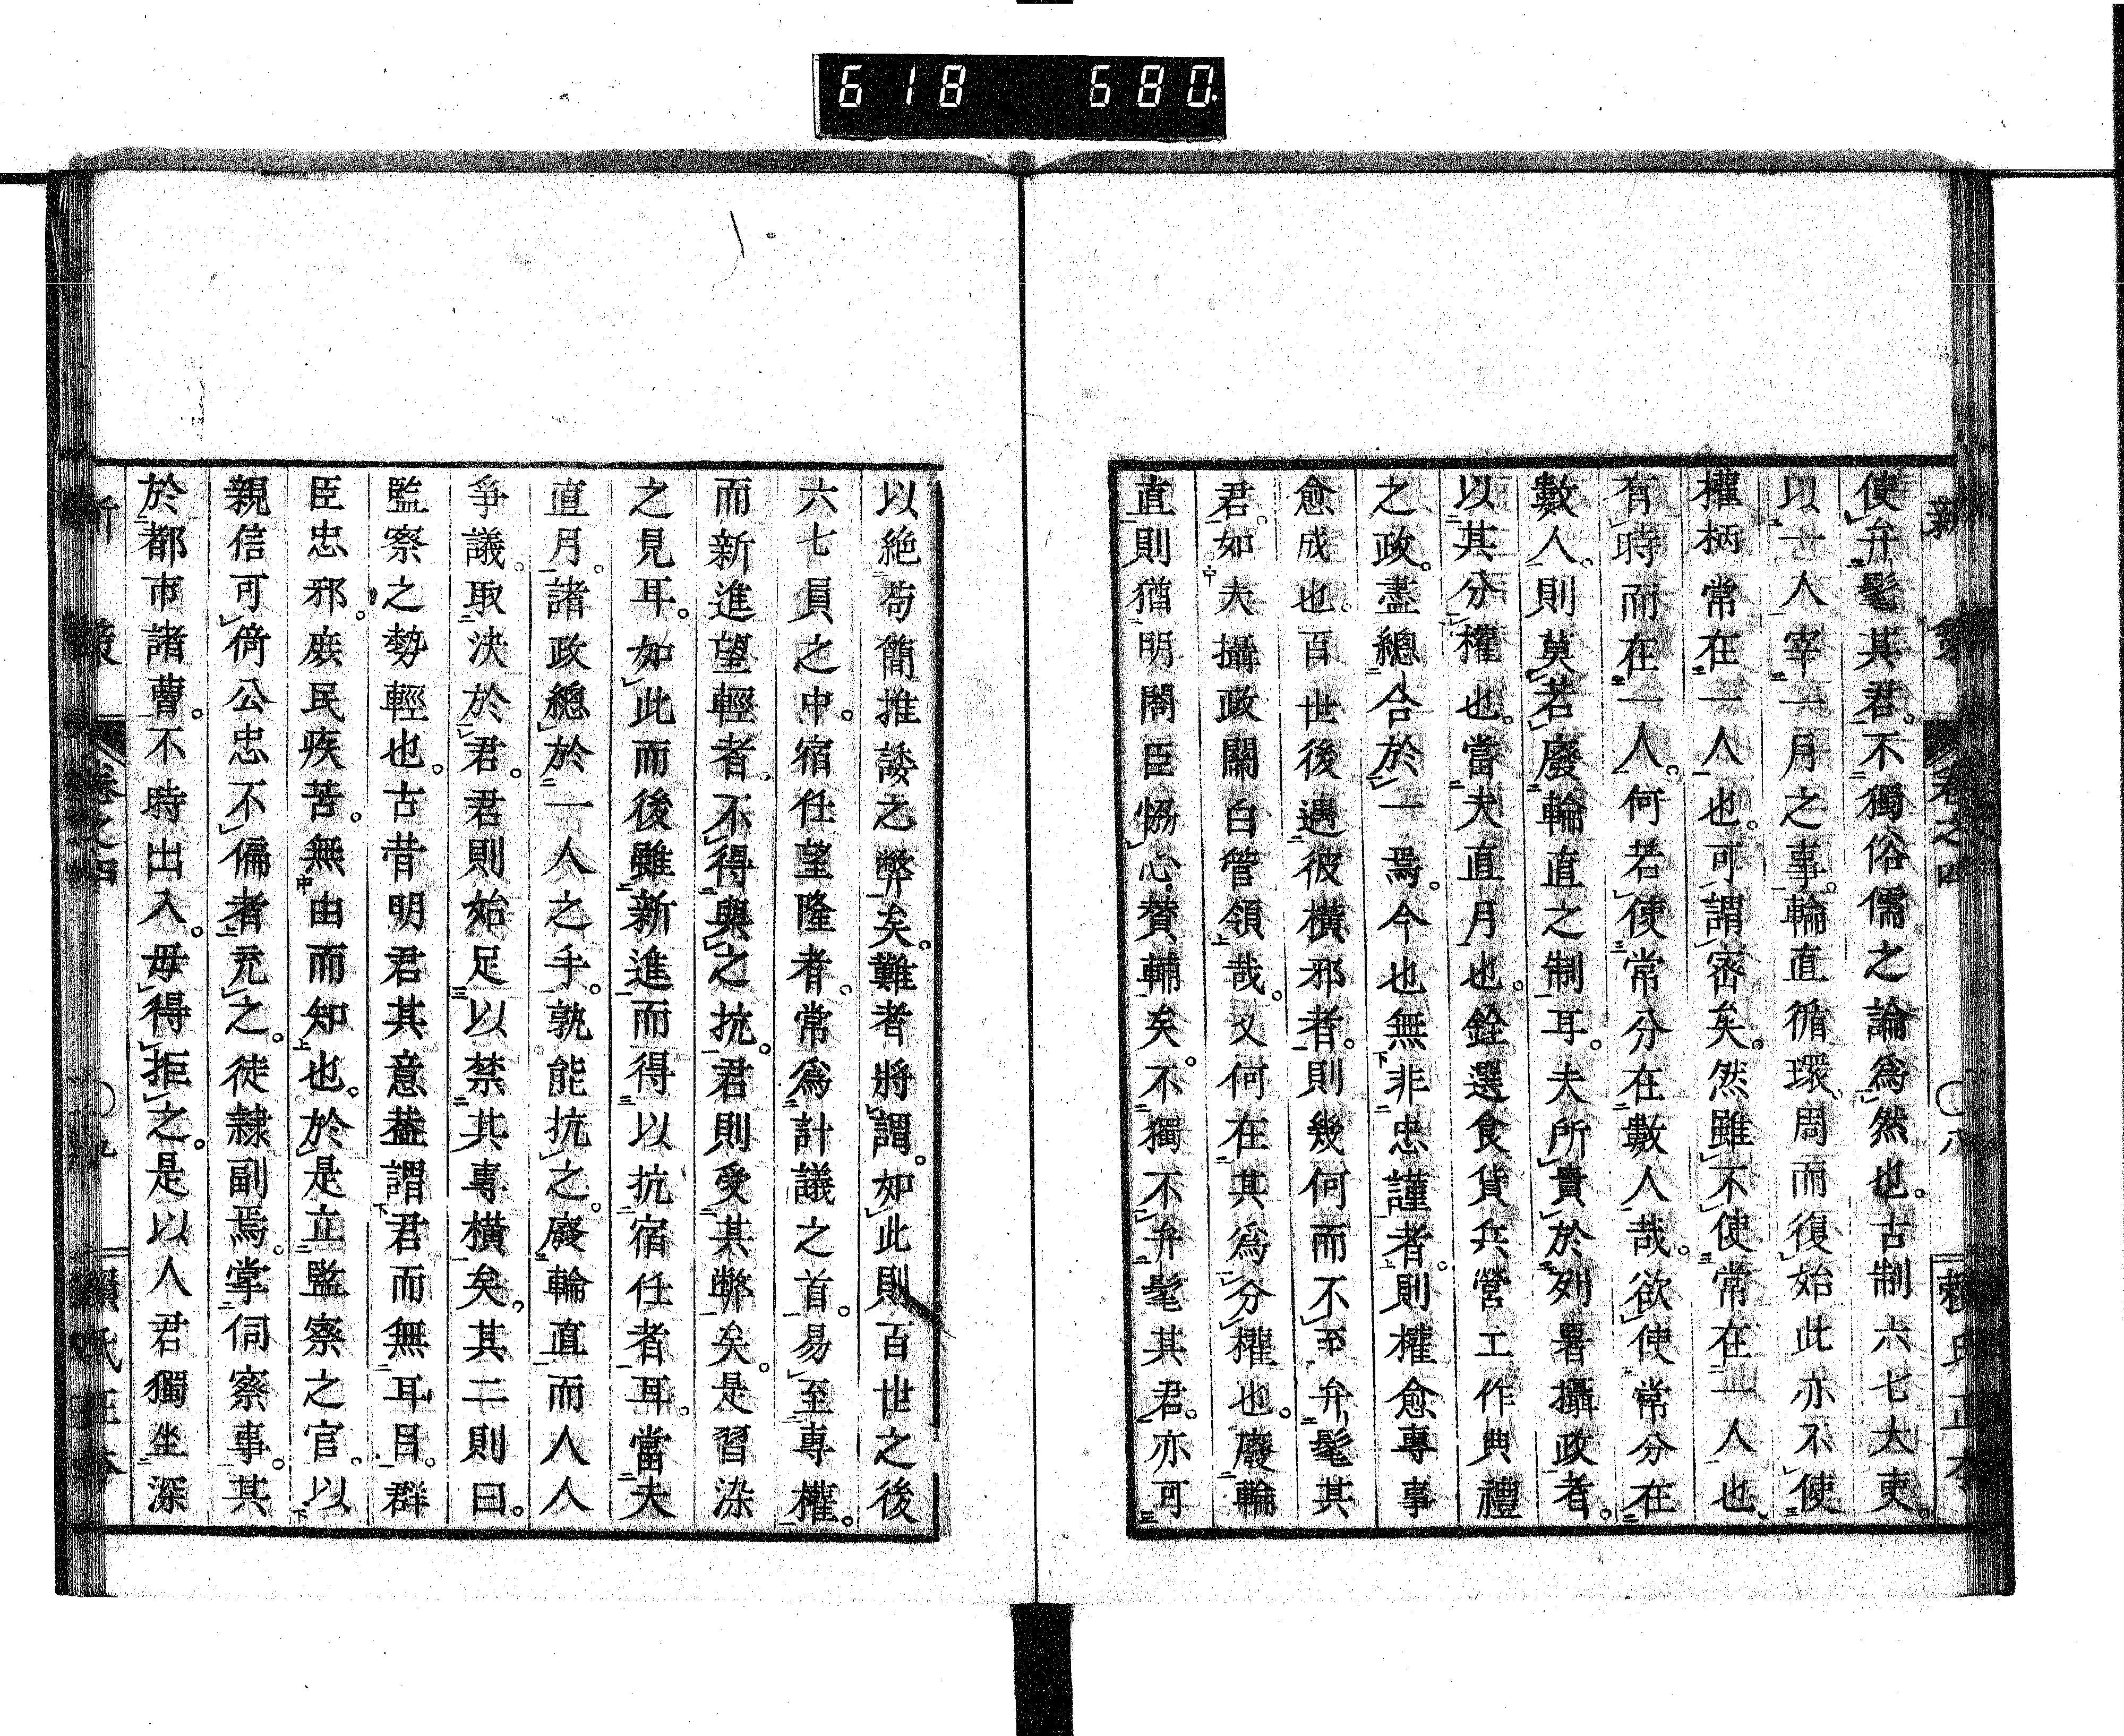 618 680
新策 卷之四 〇八 賴氏正本
使弁髦其君。不獨俗儒之論爲然也。古制六七大吏。
以一人宰一月之事。輪直循環。周而復始。此亦不使
權柄常在一人也。可謂密矣。然雖不使常在一人也、
有時而在一人。何若使常分在數人哉。欲使常分在
數人。則莫若廢輪直之制耳。夫所貴於列署攝政者。
以其分權也。當夫直月也。銓選食貨兵營工作典禮
之政。盡總合於一焉。今也無非忠謹者。則權愈專事
愈成也。百世後遇彼橫邪者。則幾何而不至弁髦其
君。如夫攝政關白管領哉。又何在其爲分權也。廢輪
直則猶明閤臣恊心贊輔矣。不獨不弁髦其君。亦可
以絕苟簡推諉之弊矣。難者將謂。如此則百世之後
六七員之中。宿任望隆者。常爲計議之首。易至專權。
而新進望輕者、不得與之抗。君則受其弊矣。是習染
之見耳。如此而後雖新進而得以抗宿任者耳。當夫
直月。諸政總於一人之手。孰能抗之。廢輪直而人人
爭議。取決於君。君則始足以禁其專橫矣。其二則曰。
監察之勢輕也。古昔明君其意蓋謂君而無耳目。群
臣忠邪。庶民疾苦。無由而知也。於是立監察之官。以
親信可倚公忠不偏者充之。徒隸副焉。掌伺察事。其
於都市諸曹。不時出入。毋得拒之。是以人君獨坐深
新策 卷之四 〇九 賴氏正本